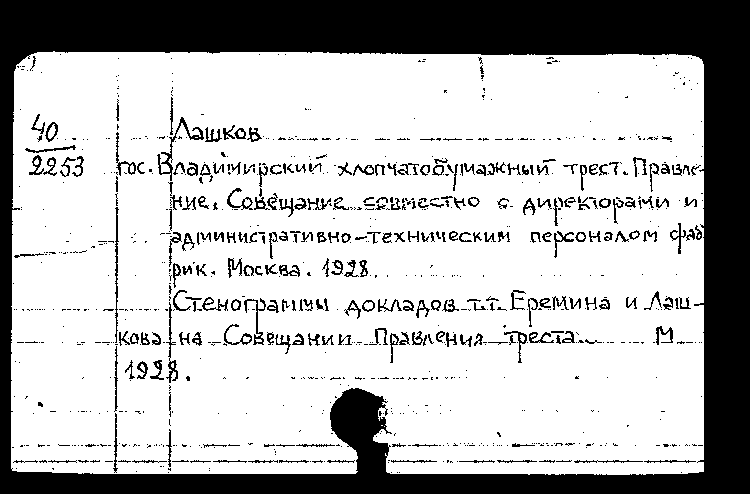 40
2253
Лашков
гос. Владимирский хлопчатобумажный трест. Правле-
ние. Совещание совместно с директорами и
административно-техническим персоналом фаб
рик. Москва. 1928.
Стенограммы докладов т.т. Еремина и Лаш-
кова на Совещании Правления треста. М
1928.